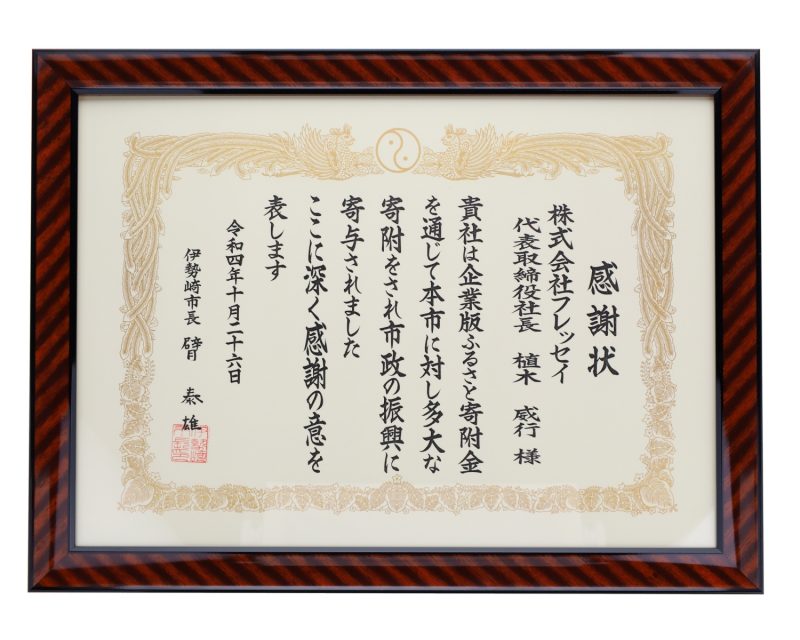 感謝状
株式会社フレッセイ
代表取締役社長 植木 威行 様
貴社は企業版ふるさと寄附金
を通じて本市に対し多大な
寄附をされ市政の振興に
寄与されました
ここに深く感謝の意を
表します
令和四年十月二十六日
伊勢崎市長 臂 泰雄